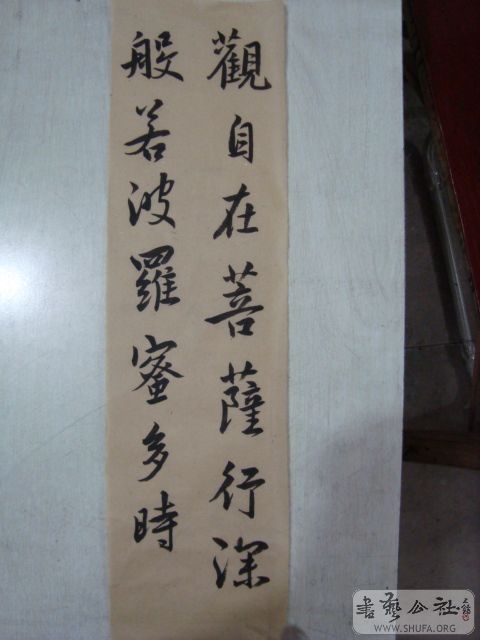 觀自在菩薩行深
般若波羅蜜多時
書藝公社
WWW.SHUFA.ORG